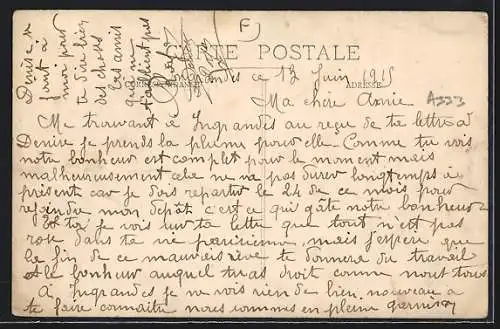 F
CARTE POSTALE
CORRESPONDANCE
ADRESSE
A223
Ingrandes ce 13 Juin 1915
Ma chère Annie
Me trouvant à Ingrandes au reçu de te lettre à
Denise je prends la plume pour elle. Comme tu vois
notre bonheur est complet pour le moment mais
malheureusement cela ne va pas durer longtemps à
présent car je dois repartir le 24 de ce mois pour
rejoindre mon dépôt c'est ce qui gâte notre bonheur
Et toi je vois sur ta lettre que tout n'est pas
rose dans ta vie parisienne, mais j'espère que
la fin de ce mauvais rêve te donnera du travail
et le bonheur auquel tu as droit comme nous tous
A Ingrandes je ne vois rien de bien nouveau a
te faire connaître nous sommes en pleine
Denise
font à
moi pour
te dire bien
des choses
Les amis
qui ne
t'oublient pas